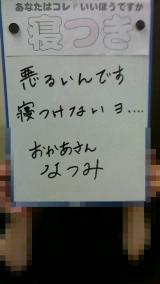 あなたはコレ いいほうですか
寝つき
悪るいんです
寝つけないヨ....
おかあさん
なつみ